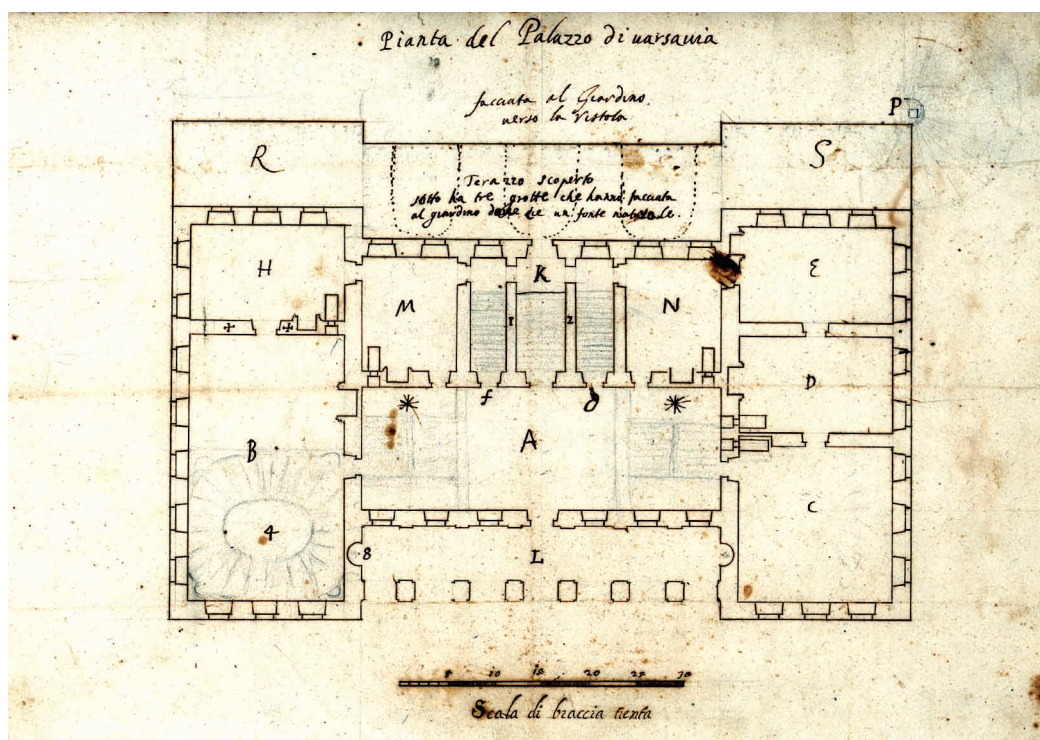 Pianta del Palazzo di uarsauia
facciata al Giardino
uerso la Vistola
P
R
S
Terazzo scoperto
sotto ha tre grotte che hanno facciata
al giardino doue è un fonte naturale.
H
K
E
M
1
2
N
D
f
O
A
B
C
4
8
L
5 10 15 20 25 30
Scala di braccia trenta